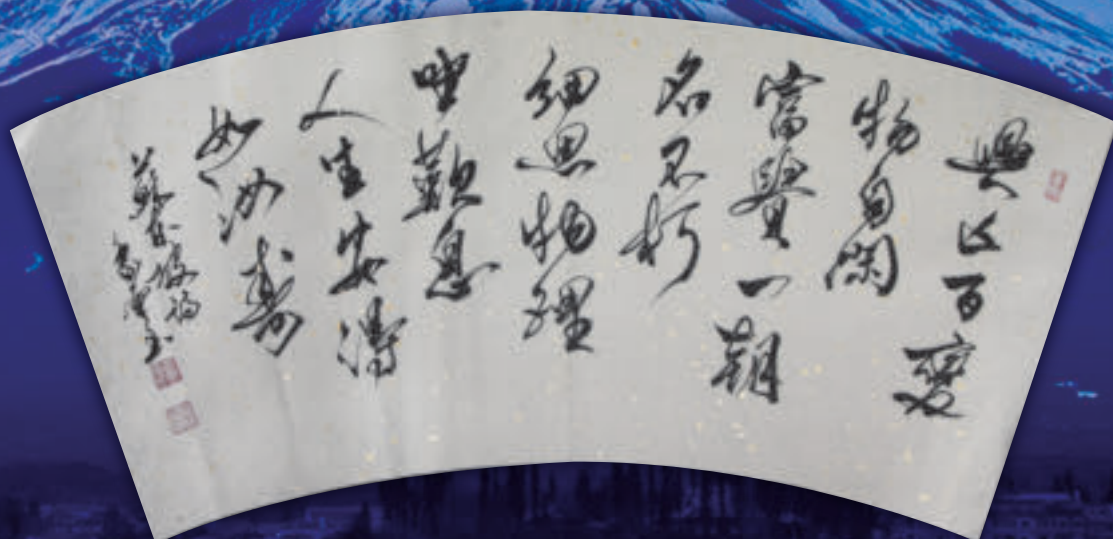 興亡百變
物自閑
富貴一朝
名不朽
細思物理
坐歎息
人生安得
如汝壽
蘇東坡詩